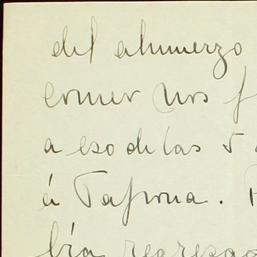 del almuerzo
comer nos f
a eso de las 5
á Tafira.
bía regresad